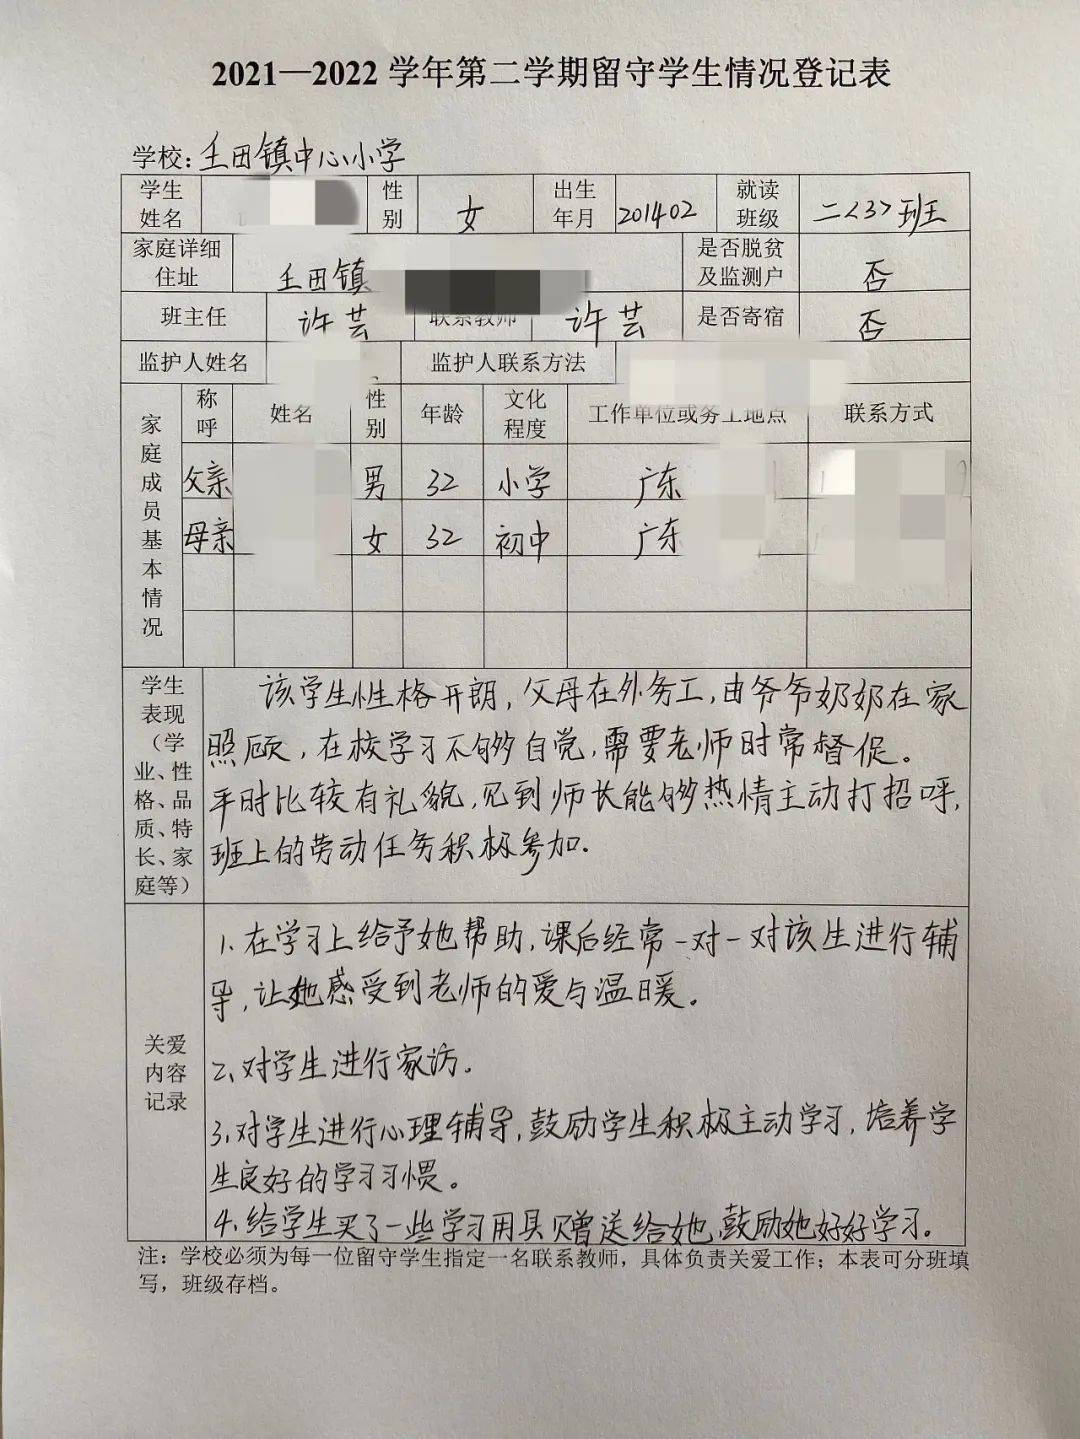 2021—2022 学年第二学期留守学生情况登记表
学校:壬田镇中心小学
学生姓名 性别 女 出生年月 201402 就读班级 二<3>班
家庭详细住址 壬田镇 是否脱贫及监测户 否
班主任 许芸 联系教师 许芸 是否寄宿 否
监护人姓名 监护人联系方法
家庭成员基本情况
称呼 姓名 性别 年龄 文化程度 工作单位或务工地点 联系方式
父亲 男 32 小学 广东
母亲 女 32 初中 广东
学生表现（学业、性格、品质、特长、家庭等）
该学生性格开朗,父母在外务工,由爷爷奶奶在家
照顾,在校学习不够自觉,需要老师时常督促。
平时比较有礼貌,见到师长能够热情主动打招呼,
班上的劳动任务积极参加.
关爱内容记录
1、在学习上给予她帮助,课后经常一对一对该生进行辅
导,让她感受到老师的爱与温暖。
2、对学生进行家访。
3、对学生进行心理辅导,鼓励学生积极主动学习,培养学
生良好的学习习惯。
4、给学生买了一些学习用具赠送给她,鼓励她好好学习。
注：学校必须为每一位留守学生指定一名联系教师，具体负责关爱工作；本表可分班填
写，班级存档。